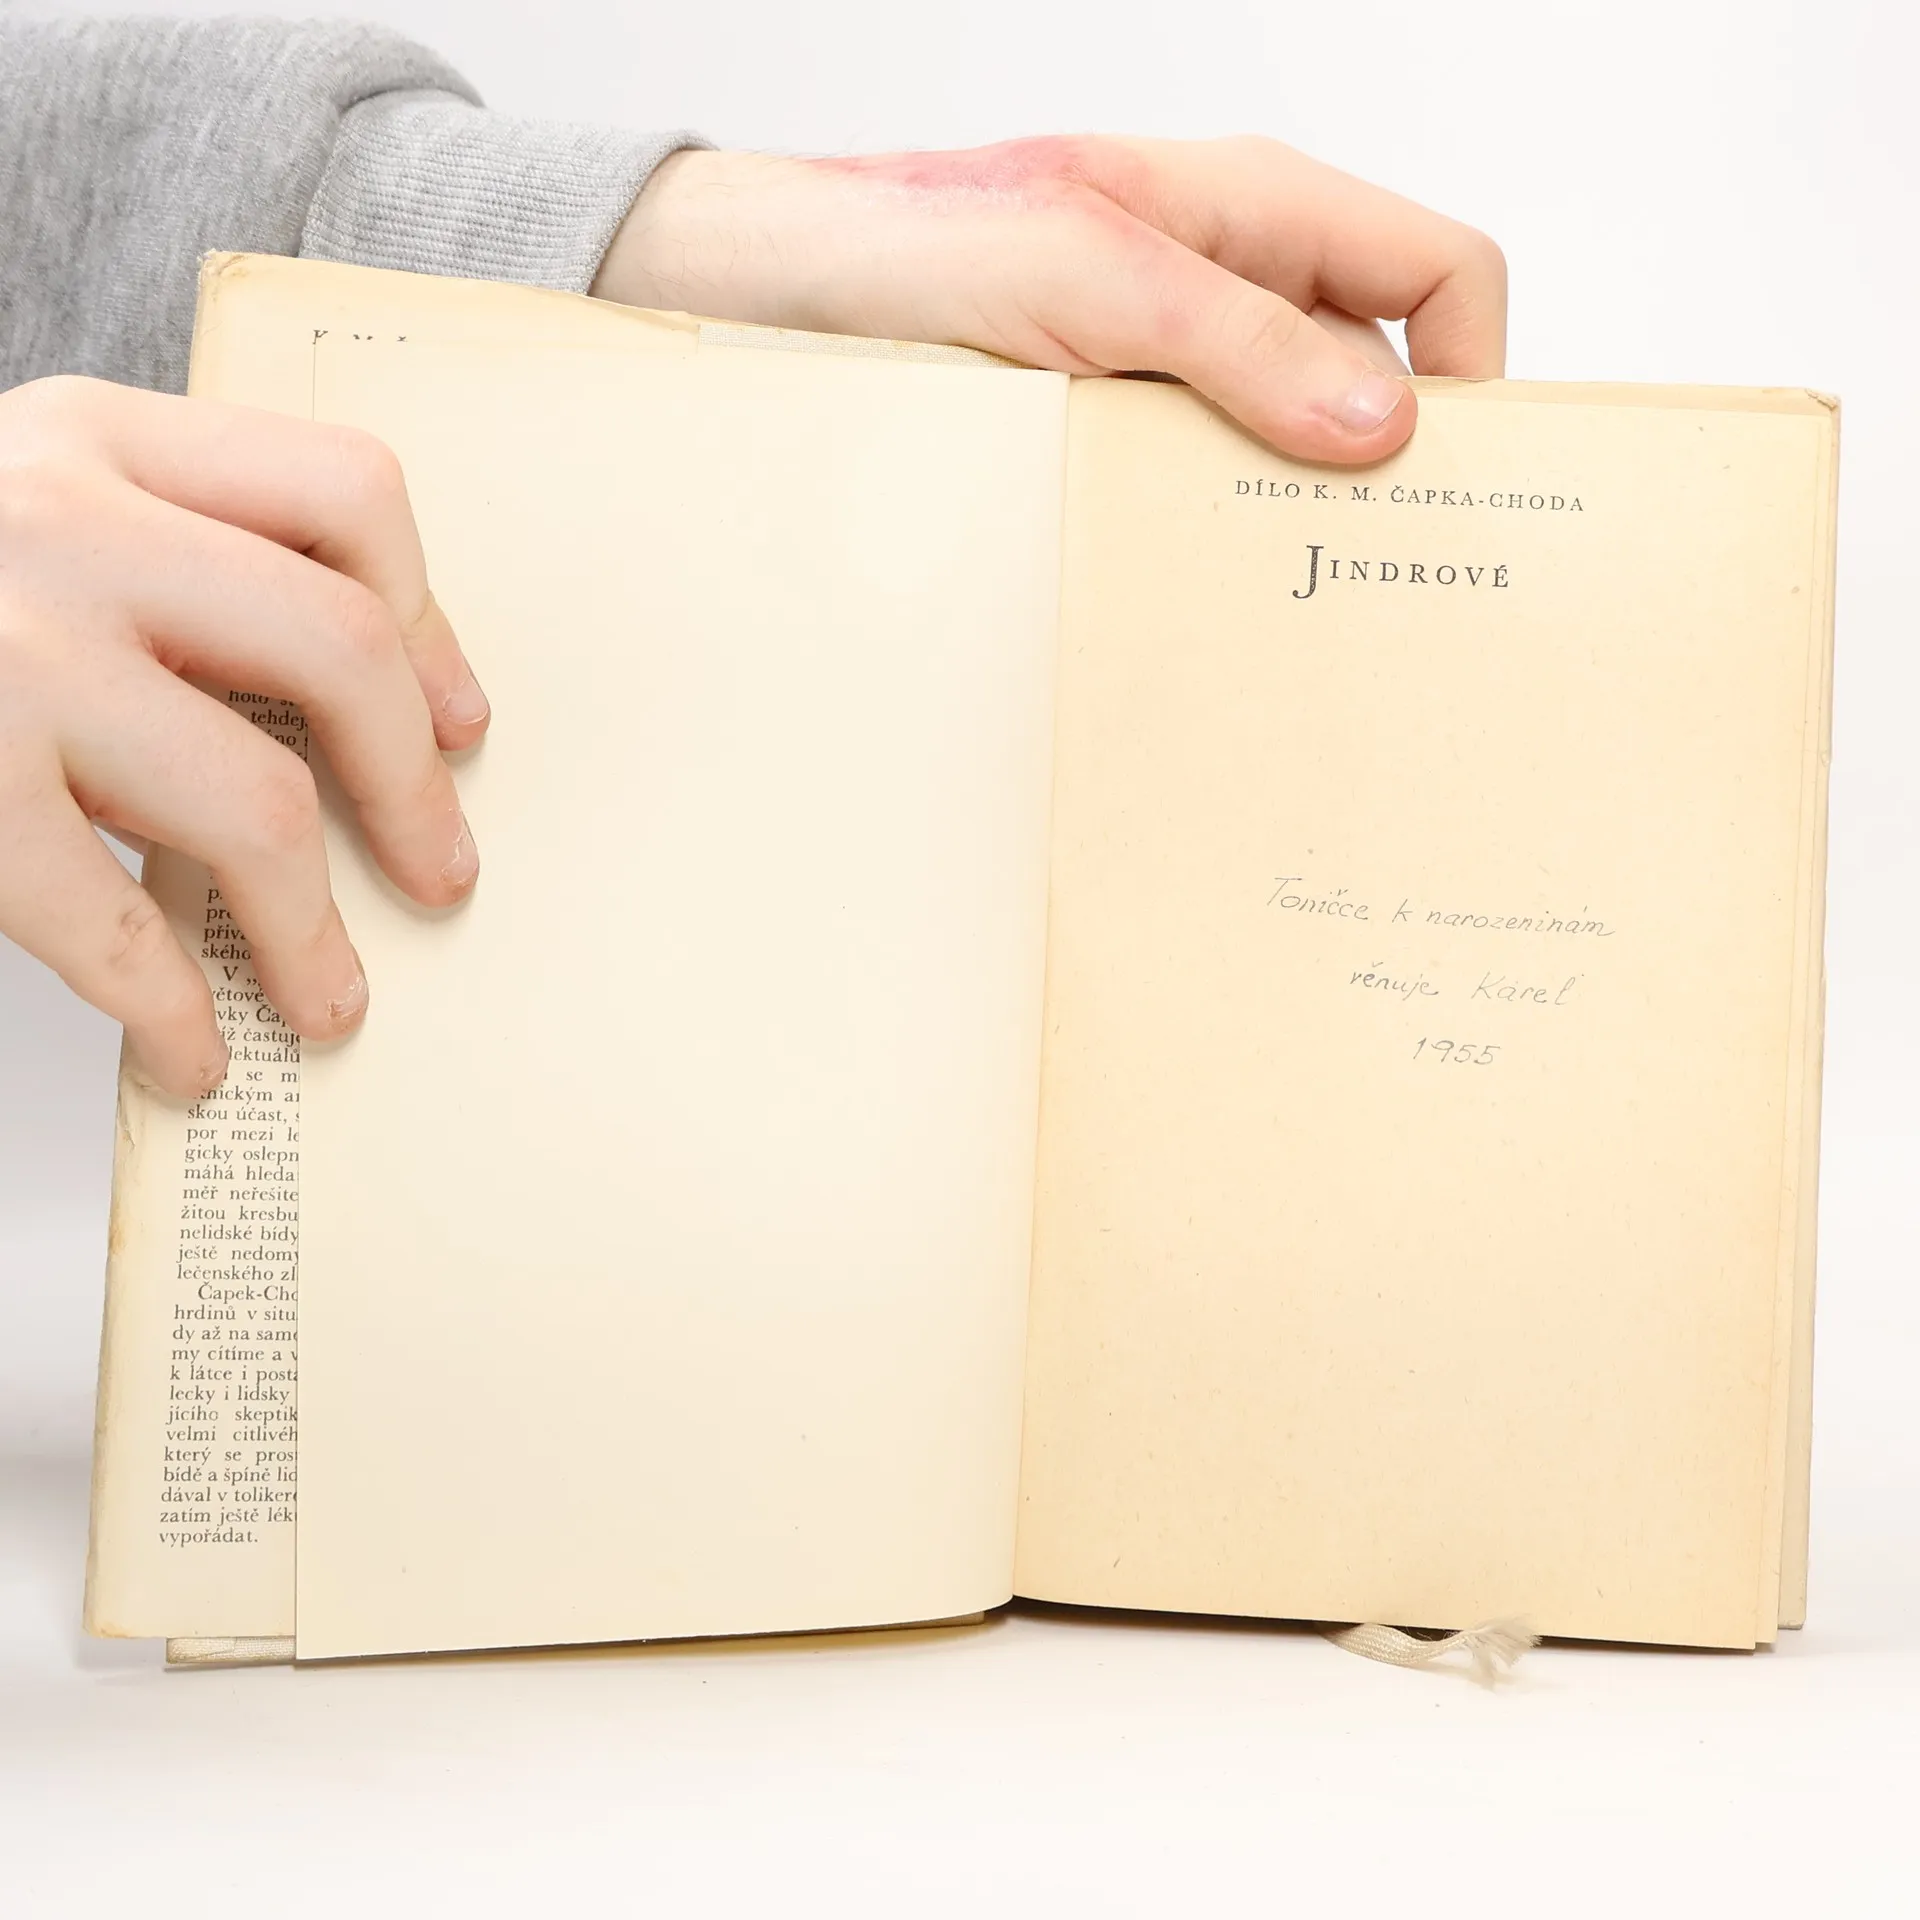 hoto
tehdej
přiv
ského
V „
větové
vky Čap
íž častuje
lektuálů
se m
tnickým an
skou účast, s
por mezi le
gicky oslepn
máhá hleda
měř neřešite
žitou kresbu
nelidské bídy
ještě nedomy
lečenského zl
Čapek-Cho
hrdinů v situ
dy až na same
my cítíme a v
k látce i posta
lecky i lidsky
jícího skeptik
velmi citlivéh
který se pros
bídě a špíně lid
dával v tolikero
zatím ještě lék
vypořádat.
DÍLO K. M. ČAPKA-CHODA
JINDROVÉ
Toničce k narozeninám
věnuje Karel
1955